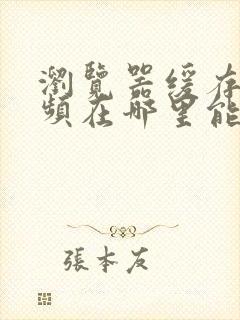 瀏覽器緩存
頻在哪里能
張本友